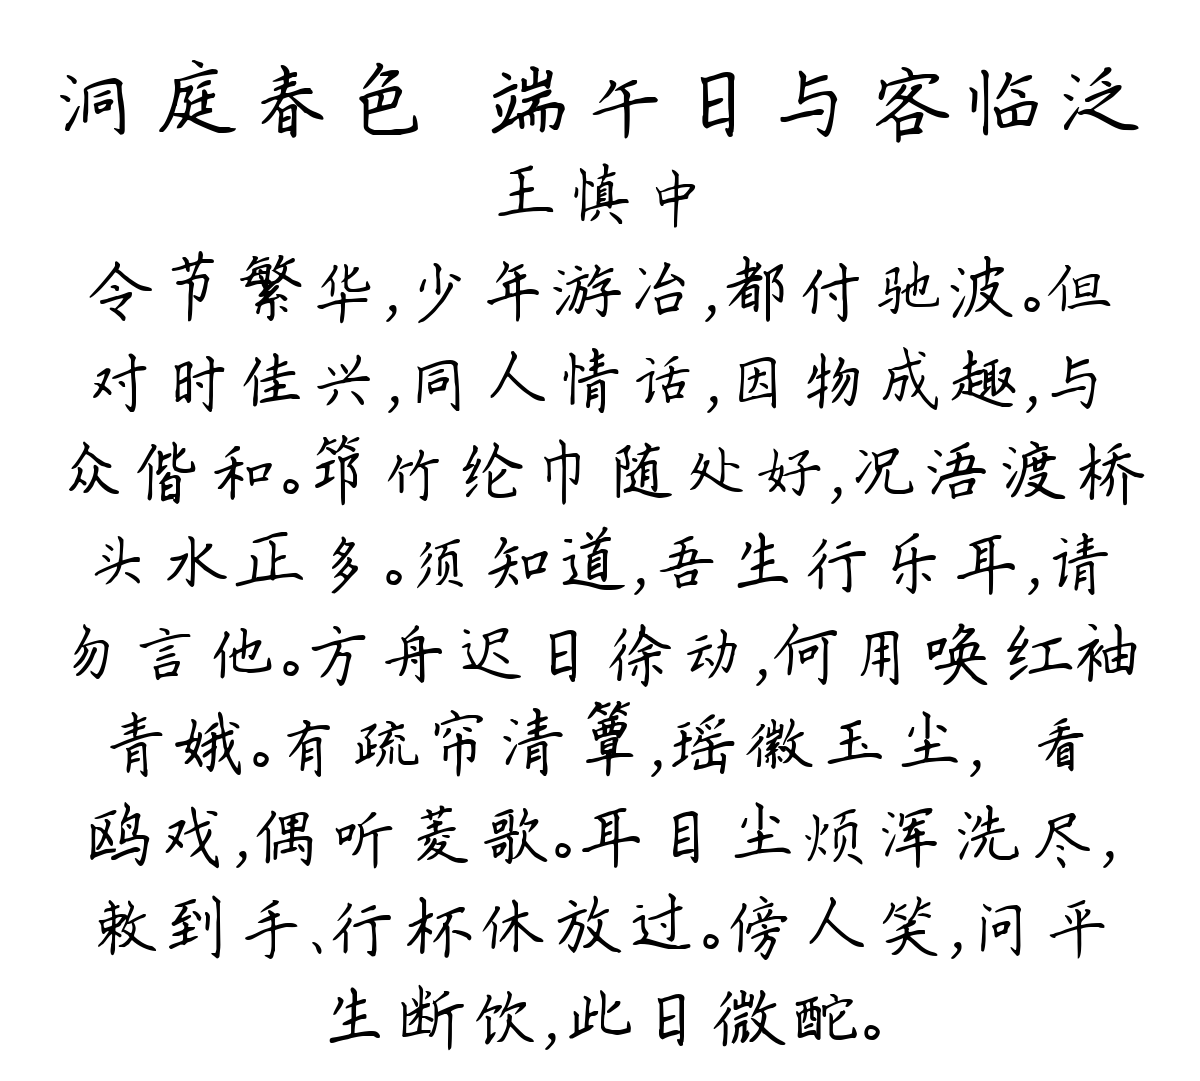 洞庭春色 端午日与客临泛
王慎中
令节繁华,少年游冶,都付驰波。但
对时佳兴,同人情话,因物成趣,与
众偕和。筇竹纶巾随处好,况浯渡桥
头水正多。须知道,吾生行乐耳,请
勿言他。方舟迟日徐动,何用唤红袖
青娥。有疏帘清簟,瑶徽玉尘, 看
鸥戏,偶听菱歌。耳目尘烦浑洗尽,
敕到手、行杯休放过。傍人笑,问平
生断饮,此日微酡。